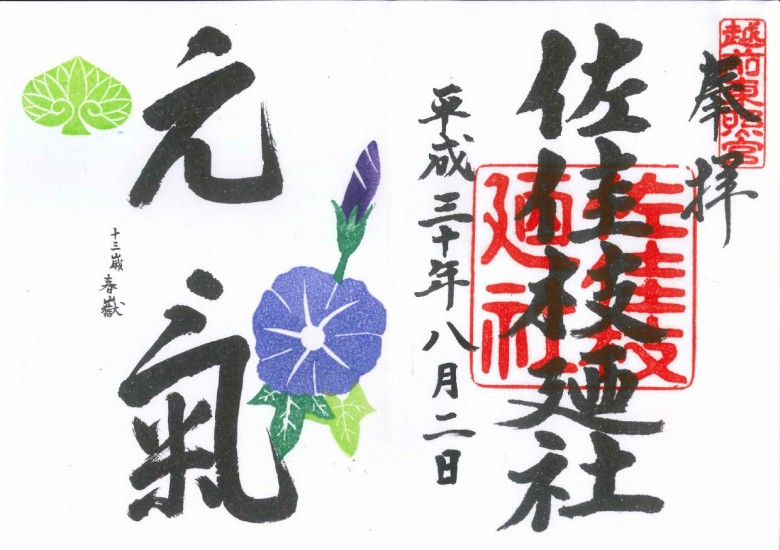 越前東照宮
奉拝
佐佳枝廼社
佐佳枝廼社
平成三十年八月二日
元氣
十三歳 春嶽